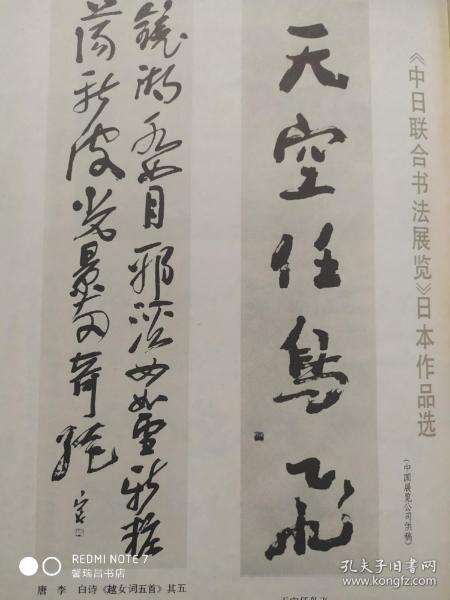 《中日联合书法展览》日本作品选
(中国展览公司供稿)
天空任鳥飛
鏡湖水如月耶溪女如雪新粧
蕩新波光景两奇絶
唐 李 白诗《越女词五首》其五
天空任鸟飞
REDMI NOTE 7
馨瑞昌书店
孔夫子旧书网